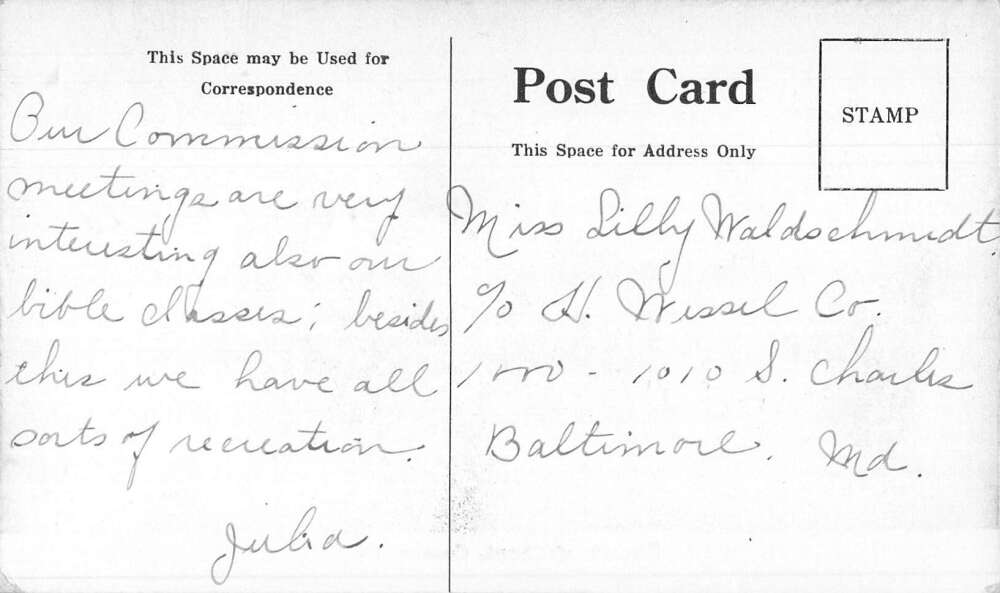 This Space may be Used for
Correspondence
Our Commission
meetings are very
interesting also our
bible classes; besides
this we have all
sorts of recreation.
Julia.
Post Card
This Space for Address Only
STAMP
Miss Lilly Waldschmidt
c/o H. Wessel Co.
1000 - 1010 S. Charles
Baltimore. Md.